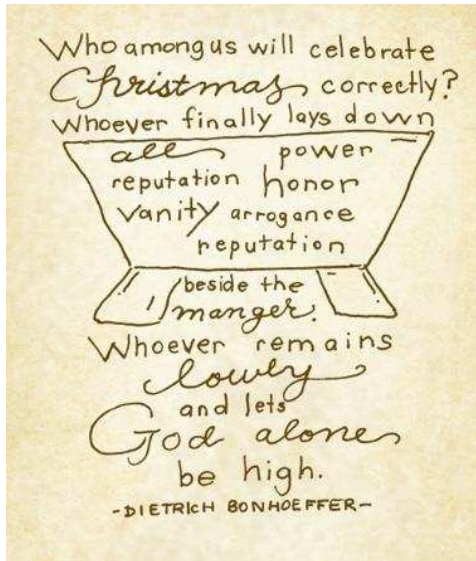 Who among us will celebrate
Christmas correctly?
Whoever finally lays down
all power
reputation honor
vanity arrogance
reputation
beside the
manger.
Whoever remains
lowly
and lets
God alone
be high.
-DIETRICH BONHOEFFER-